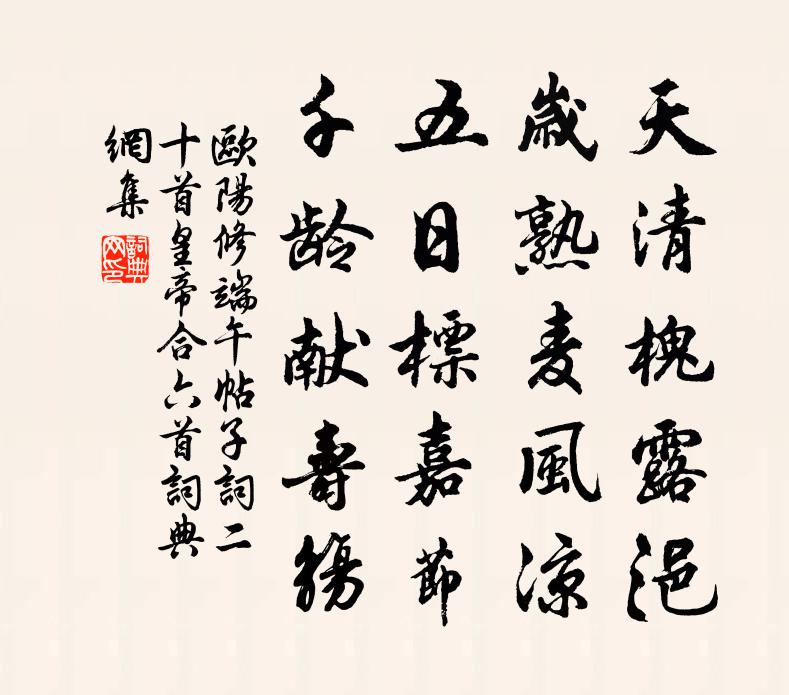 天清槐露浥
歲熟麦風涼
五日標嘉節
千龄献壽觴
歐陽修端午帖子詞二
十首皇帝合六首詞典
網集
詞典网印